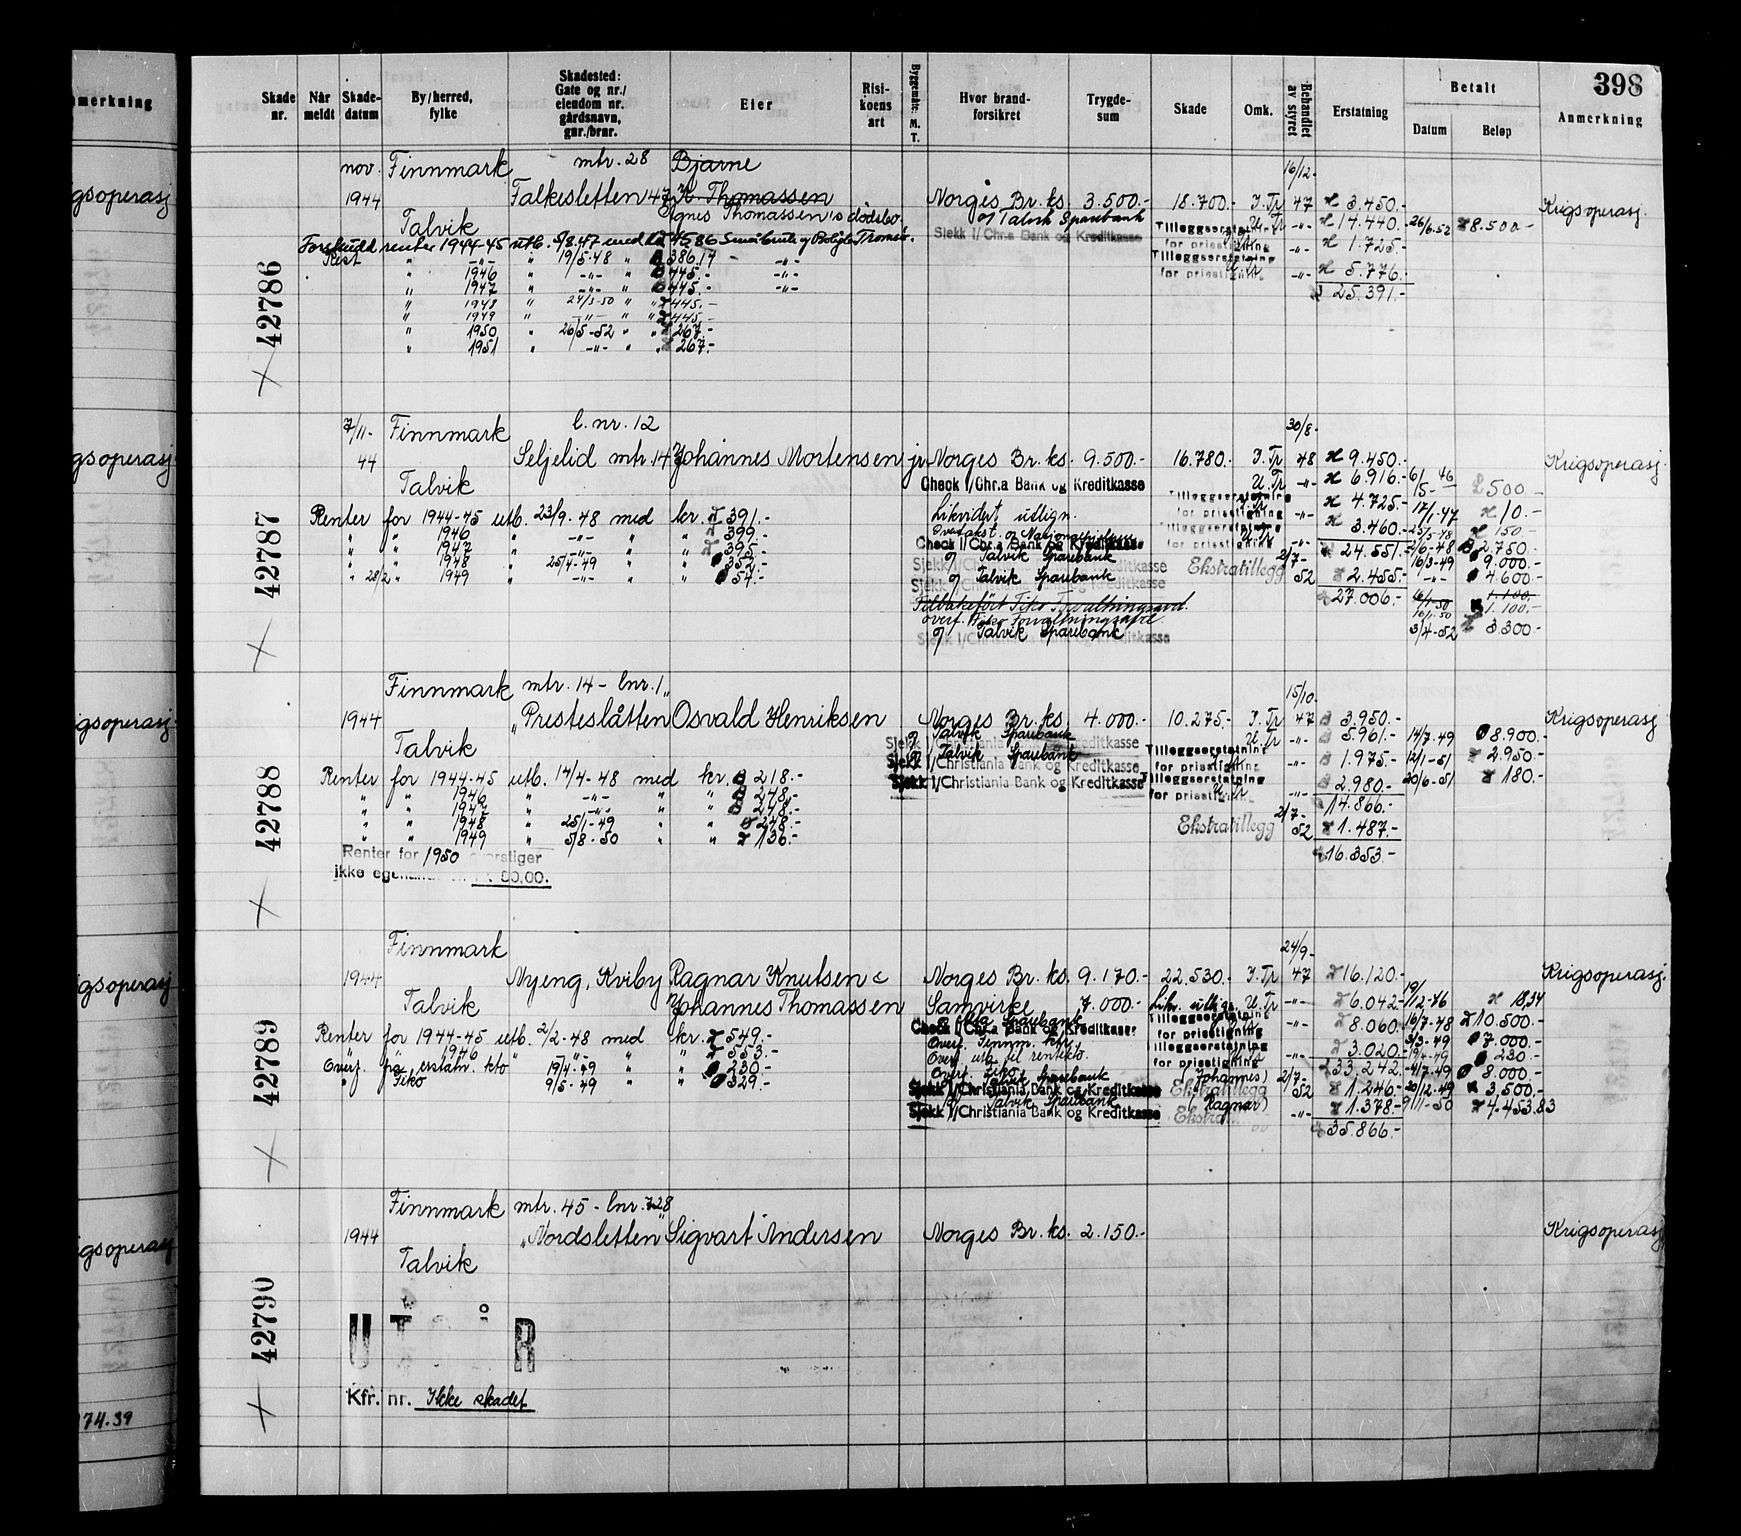 398
Anmerkning
Skade nr.
Når meldt
Skade-datum
By/herred, fylke
Skadested: Gate og nr./ eiendom nr. gårdsnavn, gnr./brnr.
Eier
Risi-koens art
Byggemåte M. T.
Hvor brand-forsikret
Trygde-sum
Skade
Omk.
Behandlet av styret
Erstatning
Betalt
Datum
Beløp
Anmerkning
42786
nov. Finnmark mtr. 28 Bjarne 16/12-
1944 Falkesletten 147 K. Thomassen Norges Br. ks. 3.500.- 18.700.- I. Tr 47 3.450.- Krigsoperasj.
Talvik Agnes Thomassen's dødsbo og Talvik Sparebank Tilleggserstatning U. Tr -"- 14.440.- 26/6.52 8.500.-
Sjekk I/Chr.a Bank og Kreditkasse for prisstigning -"- 1.725.-
Tilleggserstatning for prisstigning -"- 5.776.-
25.391.-
Forskudd renter 1944-45 utb.
Rest " -"- " 19/5-48 " 386.14 - -"-
" 1946 " -"- " 445.- -"-
" 1947 " -"- " 445.- -"-
" 1948 " 24/3-50 " " 445.-
" 1949 " -"- " " 445.-
" 1950 " 26/5-52 " " 267.-
" 1951 " -"- " " 267.-
42787
7/11- Finnmark l. nr. 12 30/8-
44 Seljelid mtr. 14 Johannes Mortensen jr. Norges Br. ks. 9.500.- 16.780.- I. Tr 48 9.450.- Krigsoperasj.
Talvik Check I/Chr.a Bank og Kreditkasse U. Tr -"- 6.916.- 500.-
Tilleggserstatning for prisstigning 4.725.- 17/1-47 10.-
Tilleggserstatning for prisstigning -"- 3.460.- 150.-
Renter for 1944-45 utb. 23/9-48 med kr. 391.- Likvidert utlign.
" " 1946 " -"- " " 399.-
" " 1947 " -"- " " 395.- Check I/Chr.a Bank og Kreditkasse 24.551.- 2.750.-
" " 1948 " 25/4-49 " " 352.- og Talvik Sparebank 2/7- 16/3-49 9.000.-
" 28/2 " 1949 " -"- " " 54.- og Talvik Sparebank Ekstratillegg 52 2.455.- -"- 4.600.-
27.006.- 1.100.-
16/1-50 1.100.-
og Talvik Sparebank 3/4-52 3.300.-
42788
Finnmark mtr. 14 - lnr. 1, 15/10.
1944 "Presteslåtten Osvald Henriksen Norges Br. ks. 4.000.- 10.275.- I. Tr 47 3.950.- Krigsoperasj
Talvik og Talvik Sparebank U. Tr -"- 5.961.- 14/7-49 8.900.-
og Talvik Sparebank Tilleggserstatning for prisstigning -"- 1.975.- 12/1-51 2.950.-
Renter for 1944-45 utb. 14/4-48 med kr. 218.- Sjekk I/Christiania Bank og Kreditkasse Tilleggserstatning for prisstigning -"- 2.980.- 20/6-51 180.-
" " 1946 " -"- " " 248.-
" " 1947 " -"- " " 248.- 14.866.-
" " 1948 " 25/1-49 " " 248.- Ekstratillegg 2/7-52 1.487.-
" " 1949 " 5/8-50 " " 136.-
Renter for 1950 overstiger 16.353.-
ikke
42789
Finnmark 24/9-
1944 Nyeng, Kviby Ragnar Knutsen & Norges Br. ks. 9.170.- 22.530.- I. Tr 47 16.120.- Krigsoperasj.
Talvik Johannes Thomassen Samvirke 7.000.- U. Tr -"- 6.042.- 18,34
Check I/Chr.a Bank og Kreditkasse Tilleggserstatning for prisstigning -"- 8.060.- 16/7-48 10.500.-
Renter for 1944-45 utb. 2/2-48 med kr. 549.- 3/3-49 7.000.-
" " 1946 " -"- " " 553.- Tilleggserstatning for prisstigning -"- 3.020.- 19/4-49 230.-
Overf. fra erstatn. kto 19/4-49 " " 230.- 33.242.- 4/7-49 8.000.-
" Fiko 9/5-49 " " 329.- Talvik Sparebank (Johannes) 2/7-52 1.246.- 20/12-49 3.500.-
Sjekk I/Christiania Bank og Kreditkasse Ekstratillegg
og Talvik Sparebank (Ragnar) -"- 1.378.- 4.453.83
Sjekk I/Christiania Bank og Kreditkasse
35.866.-
42790
Finnmark mtr. 45 - lnr. 28
1944 "Nordsletten Sigvart Andersen Norges Br. ks. 2.150.- Krigsoperasj
Talvik
UTGÅR
Kfr. nr. Ikke skadet
74.39